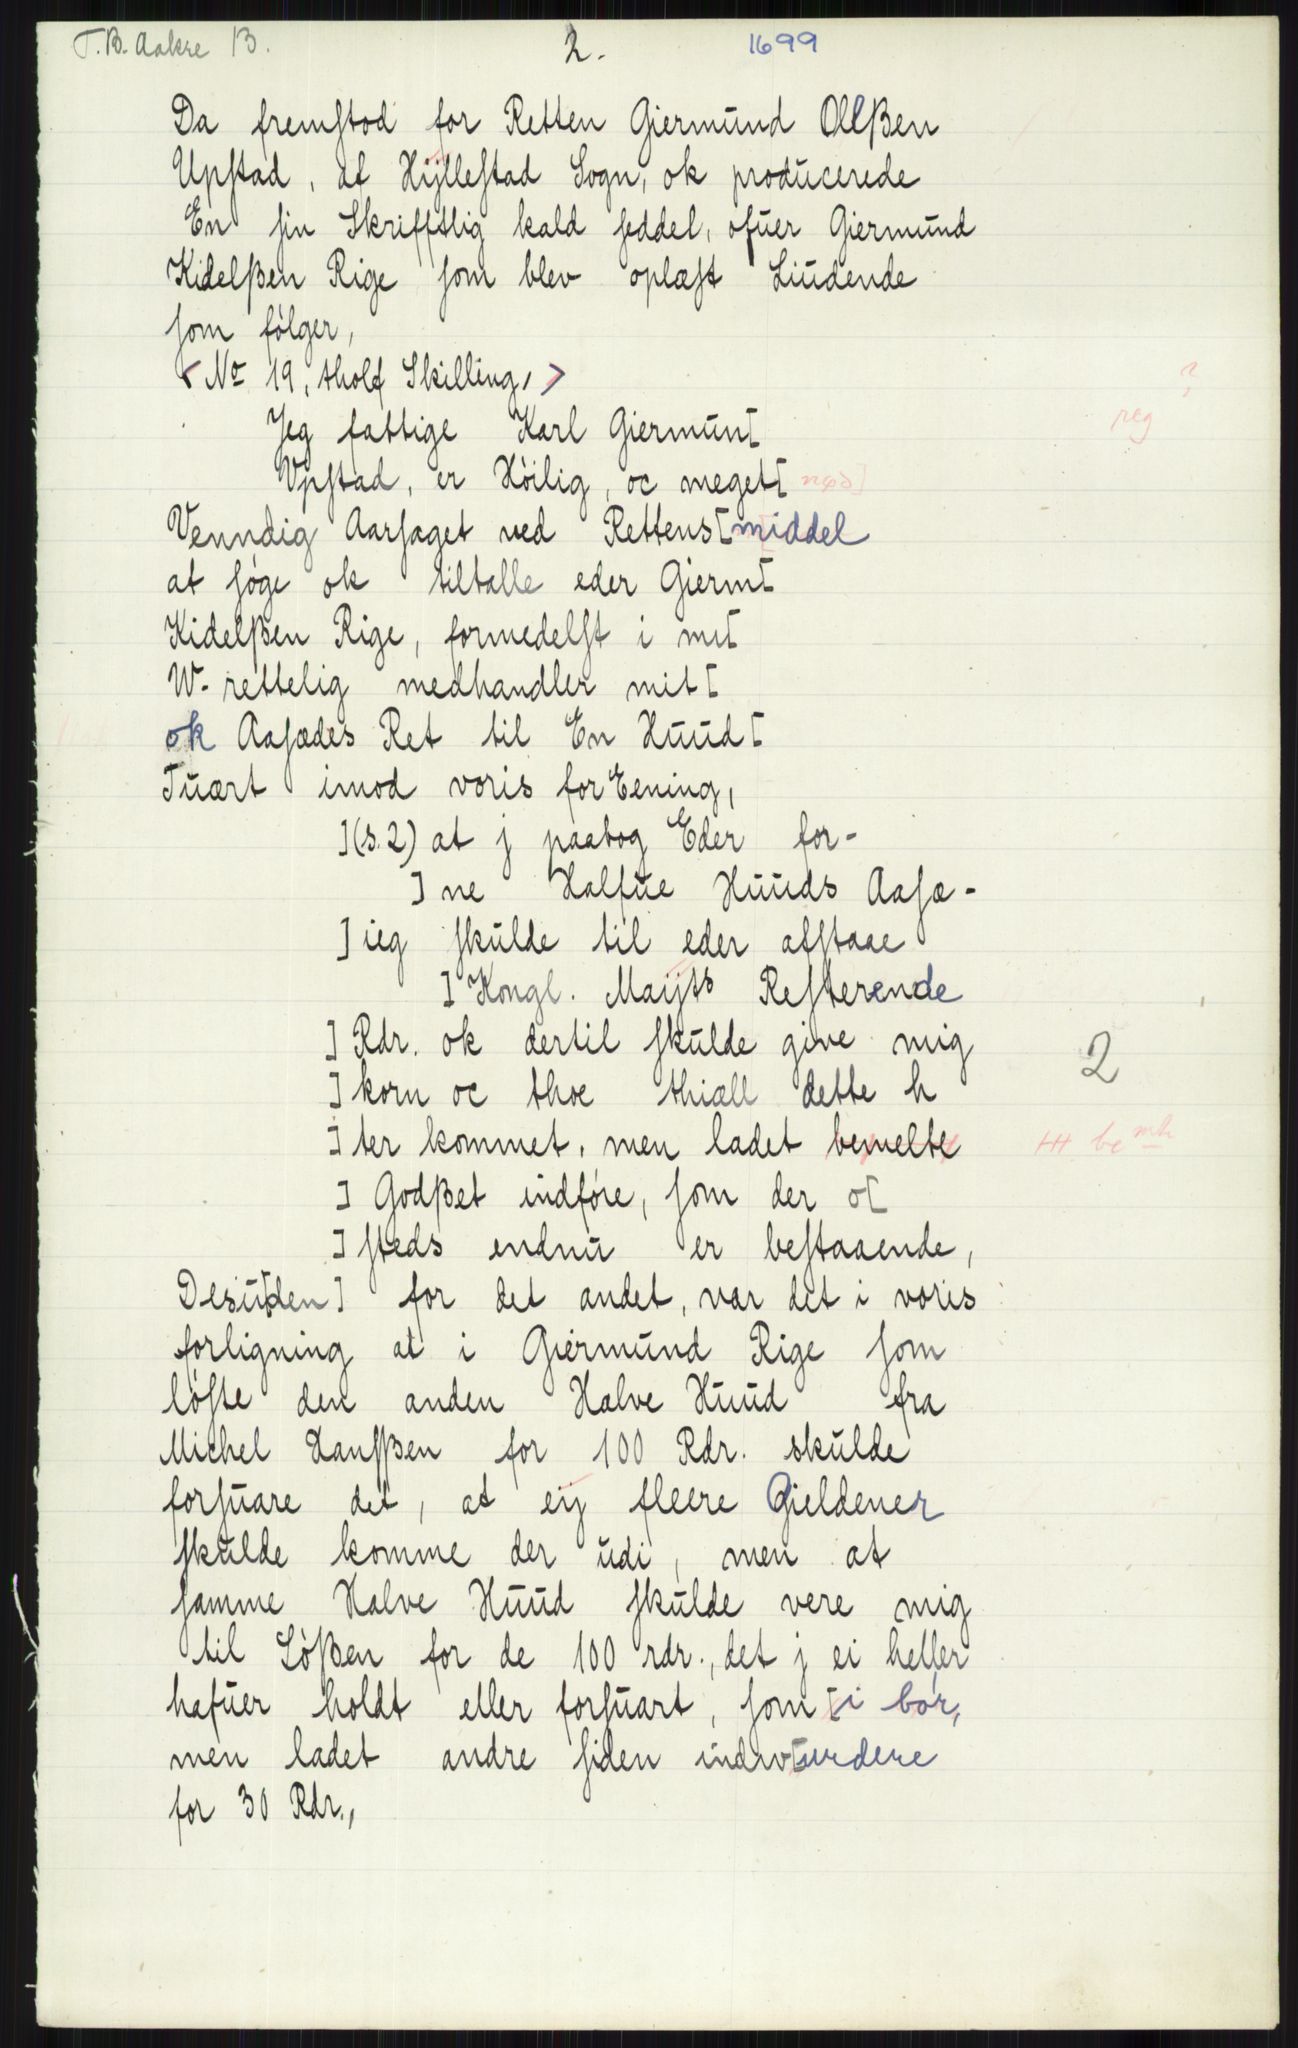 T.B. Aakre B. 2. 1699
Da fremstod for Retten Giermund Olßen
Upstad, af Hÿllestad Sogn, ok producerede
En sin Skrifftlig kald seddel, ofuer Giermund
Kidelßen Rige som blev oplæst Liudende
som følger,
< No 19, tholf Skilling, >
Jeg fattige Karl Giermun[ ?
Vpstad, er Høilig, oc meget[ nød]
Venndig Aarsaget ved Rettens [middel
at søge ok tiltalle eder Gierm[
Kidelßen Rige, formedelst i mt[
W-rettelig medhandler mit [
ok Aasædes Ret til En Huud [
Tuært imod voris forEening,
](s.2) at j paatog Eder for-
] ne Halfue Huuds Aasæ-
] ieg skulde til eder afstaae
] Kongl. Maÿts Resterende
] Rdr. ok dertil skulde give mig 2
] korn oc thoe thiæll dette h
] ter kommet, men ladet bemelte
] Godßet indføre, som der o[
] steds endnu er bestaaende,
Desu[den] for det andet, var det i voris
forligning at i Giermund Rige som
løste den anden Halve Huud fra
Michel Hansßen for 100 Rdr. skulde
forsuare det, at eij fleere Gieldener
skulde komme der udi, men at
samme Halve Huud skulde vere mig
til Løßen for de 100 rdr., det j ei heller
hafuer holdt eller forsuart, som [i bør,
men ladet andre siden indv[urdere
for 30 Rdr.,